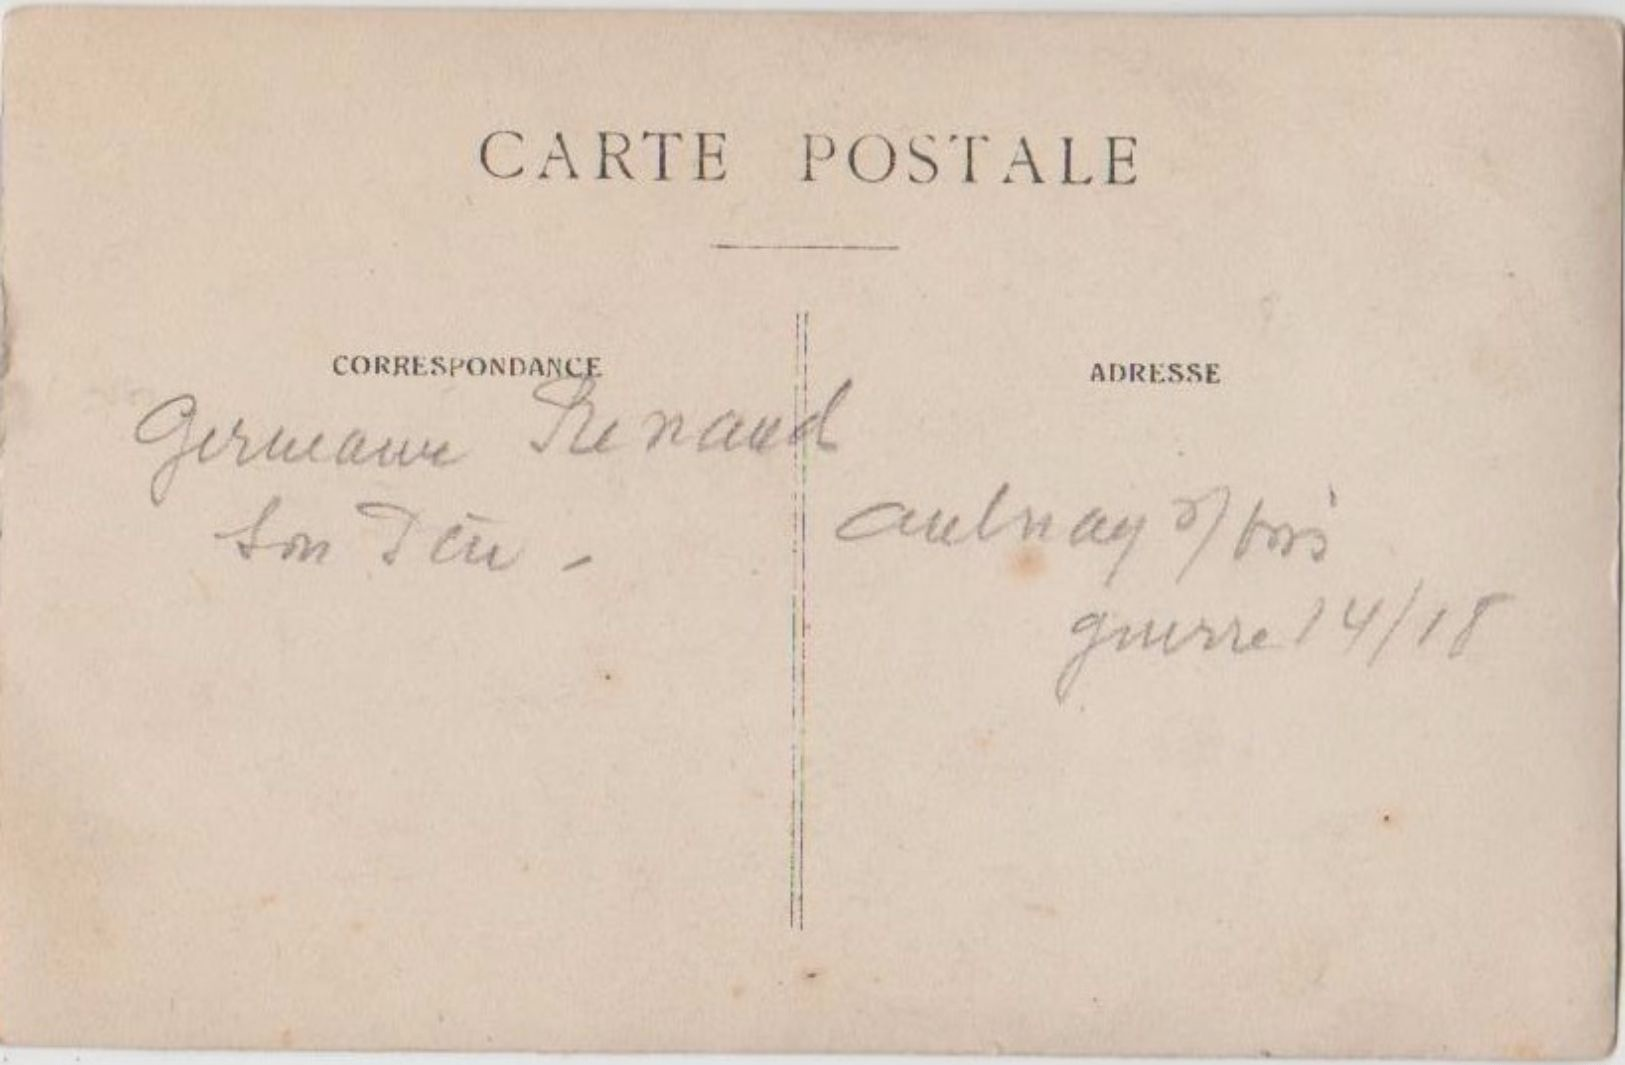 CARTE POSTALE
CORRESPONDANCE
ADRESSE
Germaine Renaud
Son Père -
aulnay s/ bois
guerre 14/18